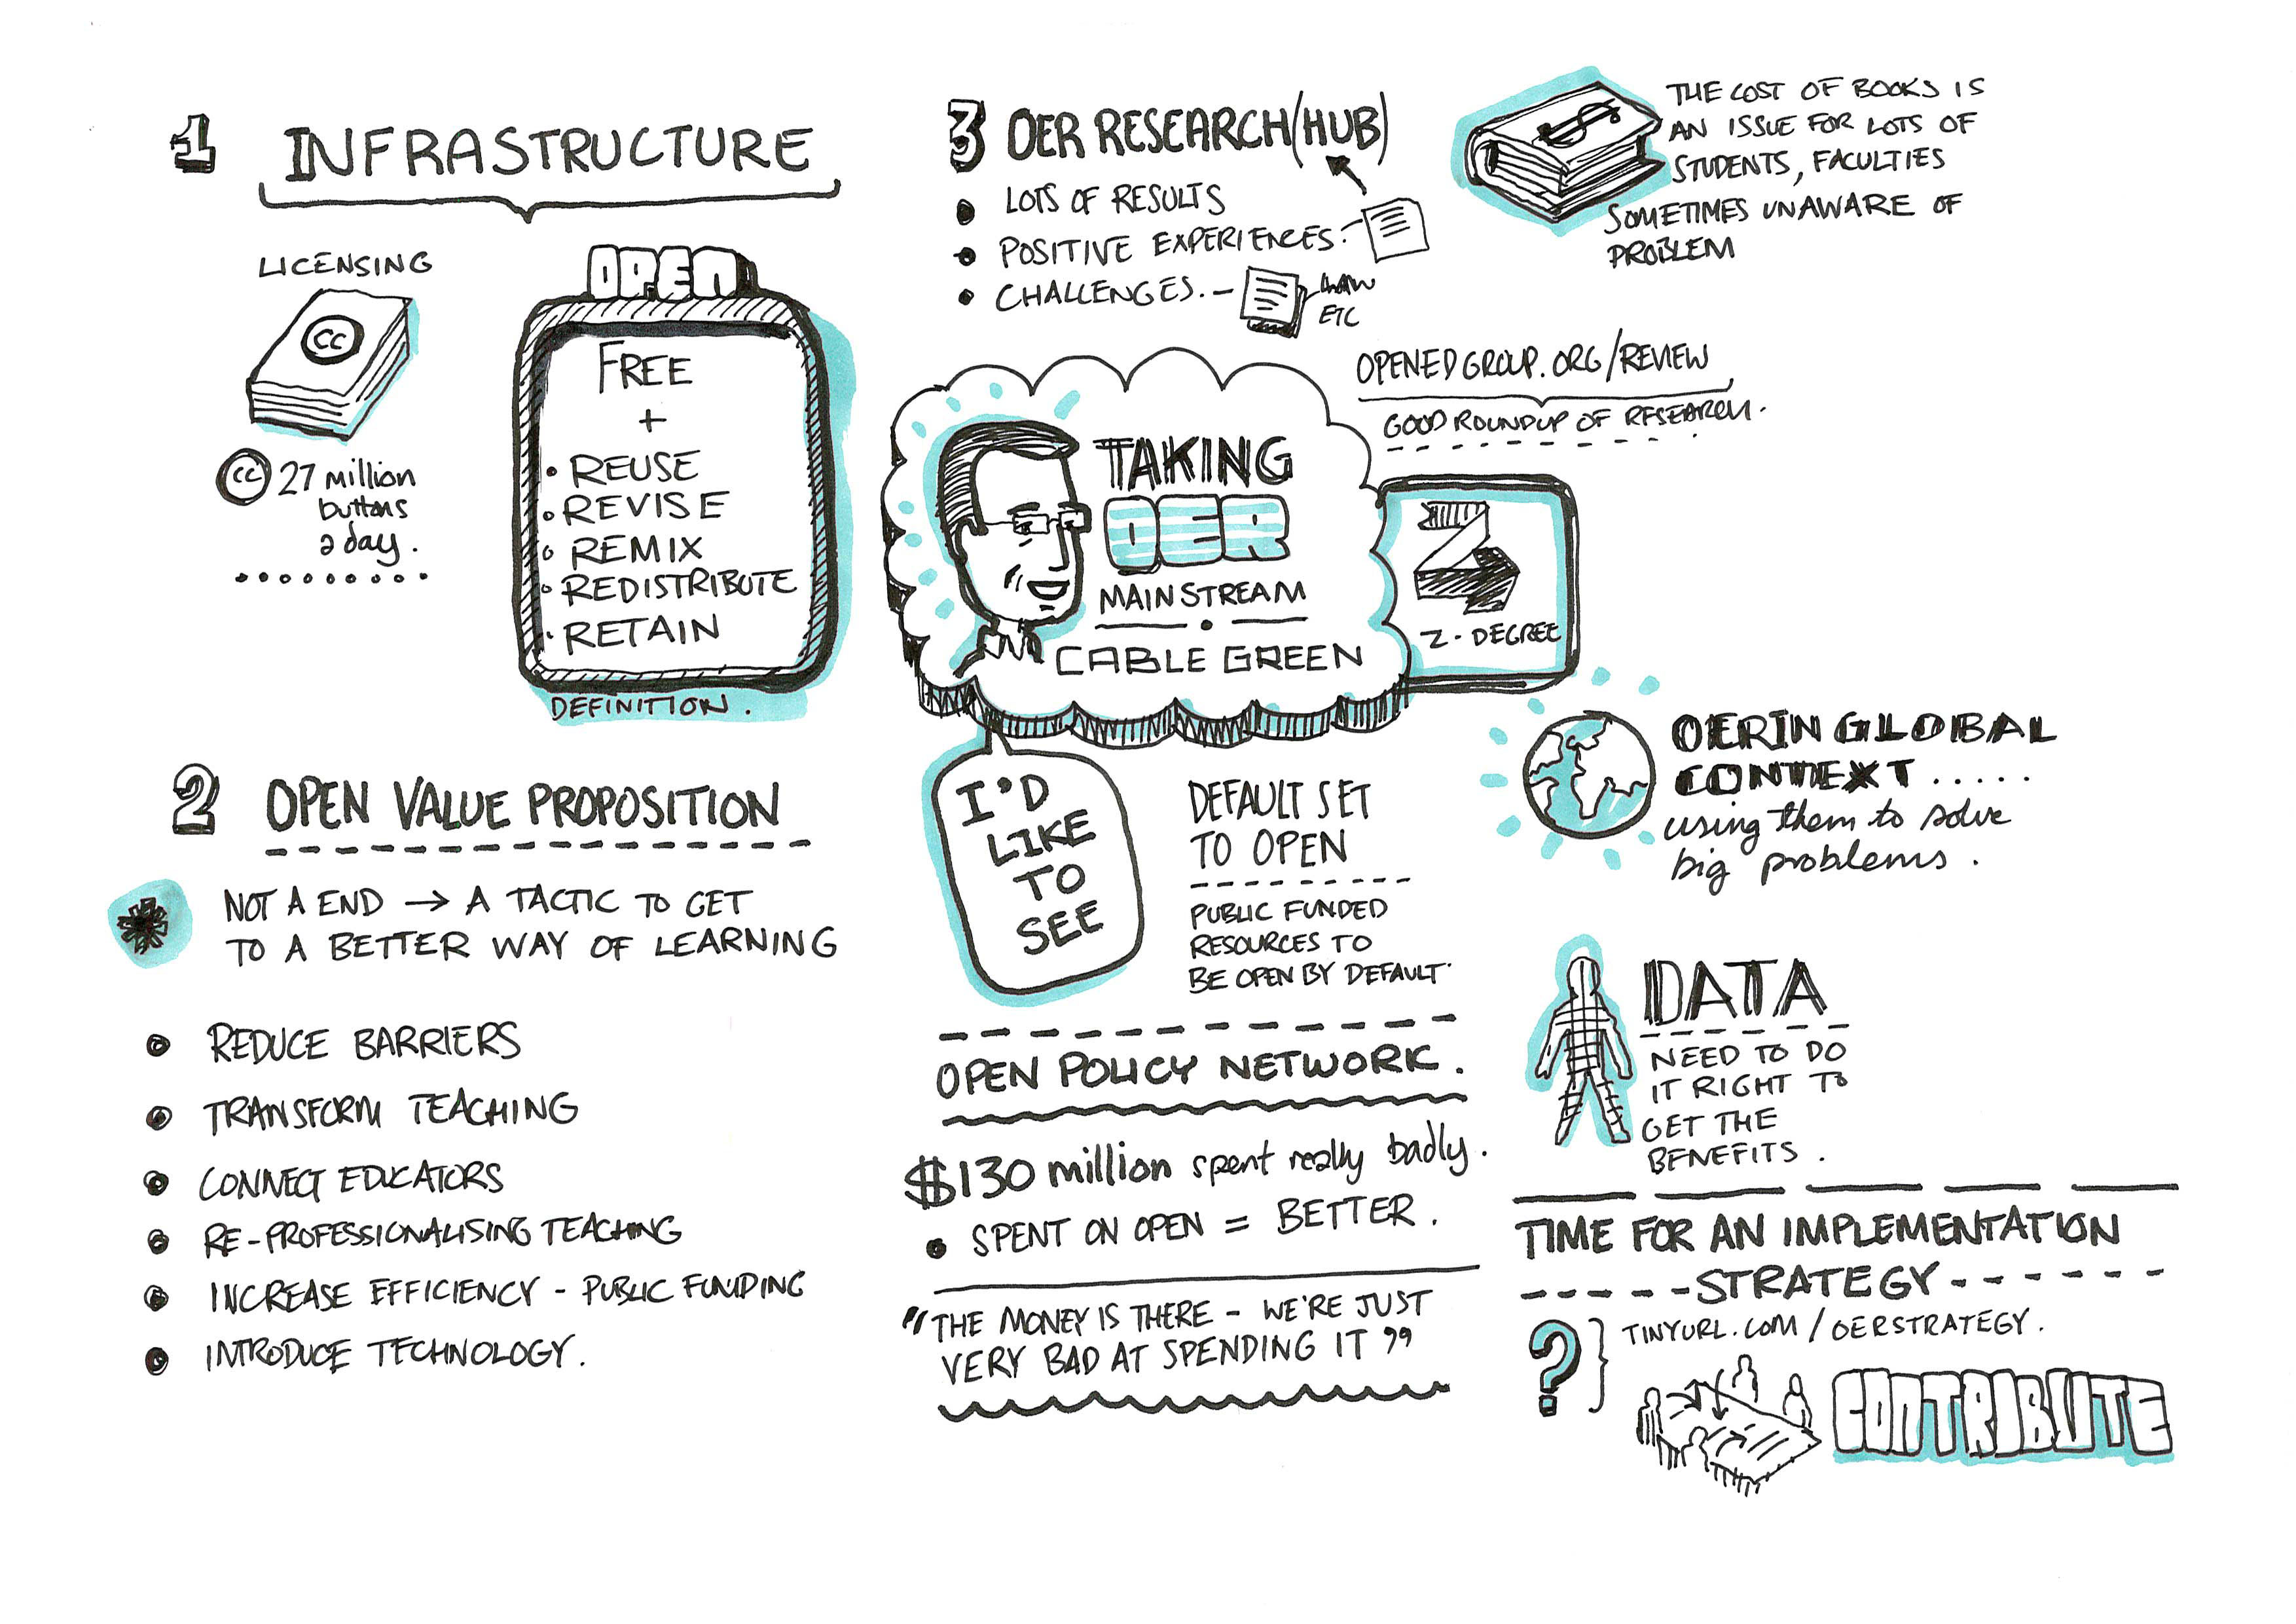 1 INFRASTRUCTURE
LICENSING
CC
CC 27 million
buttons
a day.
OPEN
FREE
+
• REUSE
• REVISE
• REMIX
• REDISTRIBUTE
• RETAIN
DEFINITION.
2 OPEN VALUE PROPOSITION
* NOT A END → A TACTIC TO GET
TO A BETTER WAY OF LEARNING
• REDUCE BARRIERS
• TRANSFORM TEACHING
• CONNECT EDUCATORS
• RE-PROFESSIONALISING TEACHING
• INCREASE EFFICIENCY - PUBLIC FUNDING
• INTRODUCE TECHNOLOGY.
3 OER RESEARCH (HUB)
• LOTS OF RESULTS
• POSITIVE EXPERIENCES.
• CHALLENGES. - LAW
ETC
$
THE COST OF BOOKS IS
AN ISSUE FOR LOTS OF
STUDENTS, FACULTIES
SOMETIMES UNAWARE OF
PROBLEM
OPENEDGROUP.ORG/REVIEW
GOOD ROUNDUP OF RESEARCH.
TAKING
OER
MAINSTREAM
CABLE GREEN
Z
Z-DEGREE
I'D
LIKE
TO
SEE
DEFAULT SET
TO OPEN
PUBLIC FUNDED
RESOURCES TO
BE OPEN BY DEFAULT.
OPEN POLICY NETWORK.
$130 million spent really badly.
• SPENT ON OPEN = BETTER.
"THE MONEY IS THERE - WE'RE JUST
VERY BAD AT SPENDING IT"
OER IN GLOBAL
CONTEXT.....
using them to solve
big problems.
DATA
NEED TO DO
IT RIGHT TO
GET THE
BENEFITS.
TIME FOR AN IMPLEMENTATION
STRATEGY
? } TINYURL.COM/OERSTRATEGY.
CONTRIBUTE